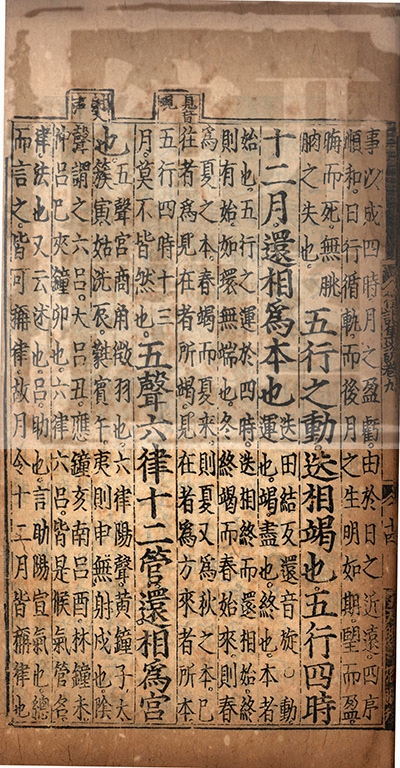 事以成四時月之盈虧由於日之近遠四序
順和日行循軌而後月之生明如期朢而盈
晦而死無朓
朒之失也
五行之動迭相竭也五行四時
十二月還相爲本也
迭田結反還音旋○動
運也竭盡也終也本者
始也五行之運於四時迭相終而還相始終
則有始如環無端也冬終竭而春始來則春
爲夏之本春竭而夏來則夏又爲秋之本已
見音現
往者爲見在者所竭見在者爲方來者所本
五行四時十二
月莫不皆然也
五聲六律十二管還相爲宮
也五聲宮商角徵羽也六律陽聲黃鐘子太
簇寅姑洗辰蕤賓午夷則申無射戌也陰
聲謂之六呂大呂丑應鐘亥南呂酉林鐘未
仲呂巳夾鐘卯也六律六呂皆是候氣管名
律法也又云述也呂助也言助陽宣氣也總
而言之皆可稱律故月令十二月皆稱律也